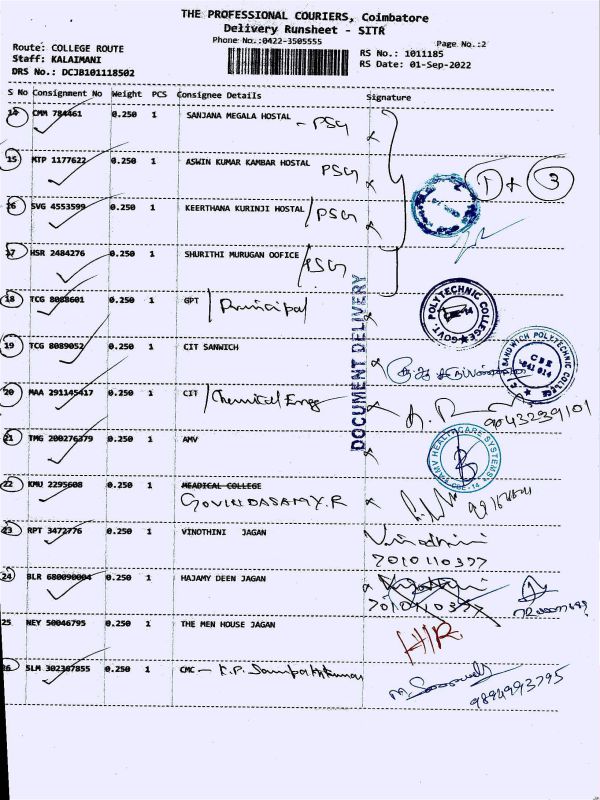 THE PROFESSIONAL COURIERS, Coimbatore
Delivery Runsheet - SITR
Phone No.:0422-3505555
Page No.:2
Route: COLLEGE ROUTE
Staff: KALAIMANI
DRS No.: DCJB101118502
RS No.: 1011185
RS Date: 01-Sep-2022
S No Consignment No Weight PCS Consignee Details Signature
14 CMM 784461 0.250 1 SANJANA MEGALA HOSTAL - PSG
15 MTP 1177622 0.250 1 ASWIN KUMAR KAMBAR HOSTAL PSG
1 + 3
16 SVG 4553599 0.250 1 KEERTHANA KURINJI HOSTAL / PSG
17 HSR 2484276 0.250 1 SHURITHI MURUGAN OOFICE / PSG
18 TCG 8088601 0.250 1 GPT / Principal
GOVT. POLYTECHNIC COLLEGE
DOCUMENT DELIVERY
19 TCG 8089052 0.250 1 CIT SANWICH
SANDWICH POLYTECHNIC COLLEGE
CBE
641 014
20 MAA 291145417 0.250 1 CIT / Chemical Engg
9043239101
21 TMG 200276379 0.250 1 AMV
HEALTHCARE SYSTEMS
22 KMU 2295608 0.250 1 MEADICAL COLLEGE
GOVINDASAMY.R
23 RPT 3472776 0.250 1 VINOTHINI JAGAN
Vinodhini
7010110377
24 BLR 680090004 0.250 1 HAJAMY DEEN JAGAN
7010110377
25 NEY 50046795 0.250 1 THE MEN HOUSE JAGAN
H/R
26 SLM 302387855 0.250 1 CMC - K.P. Sampathkumar
9894993795